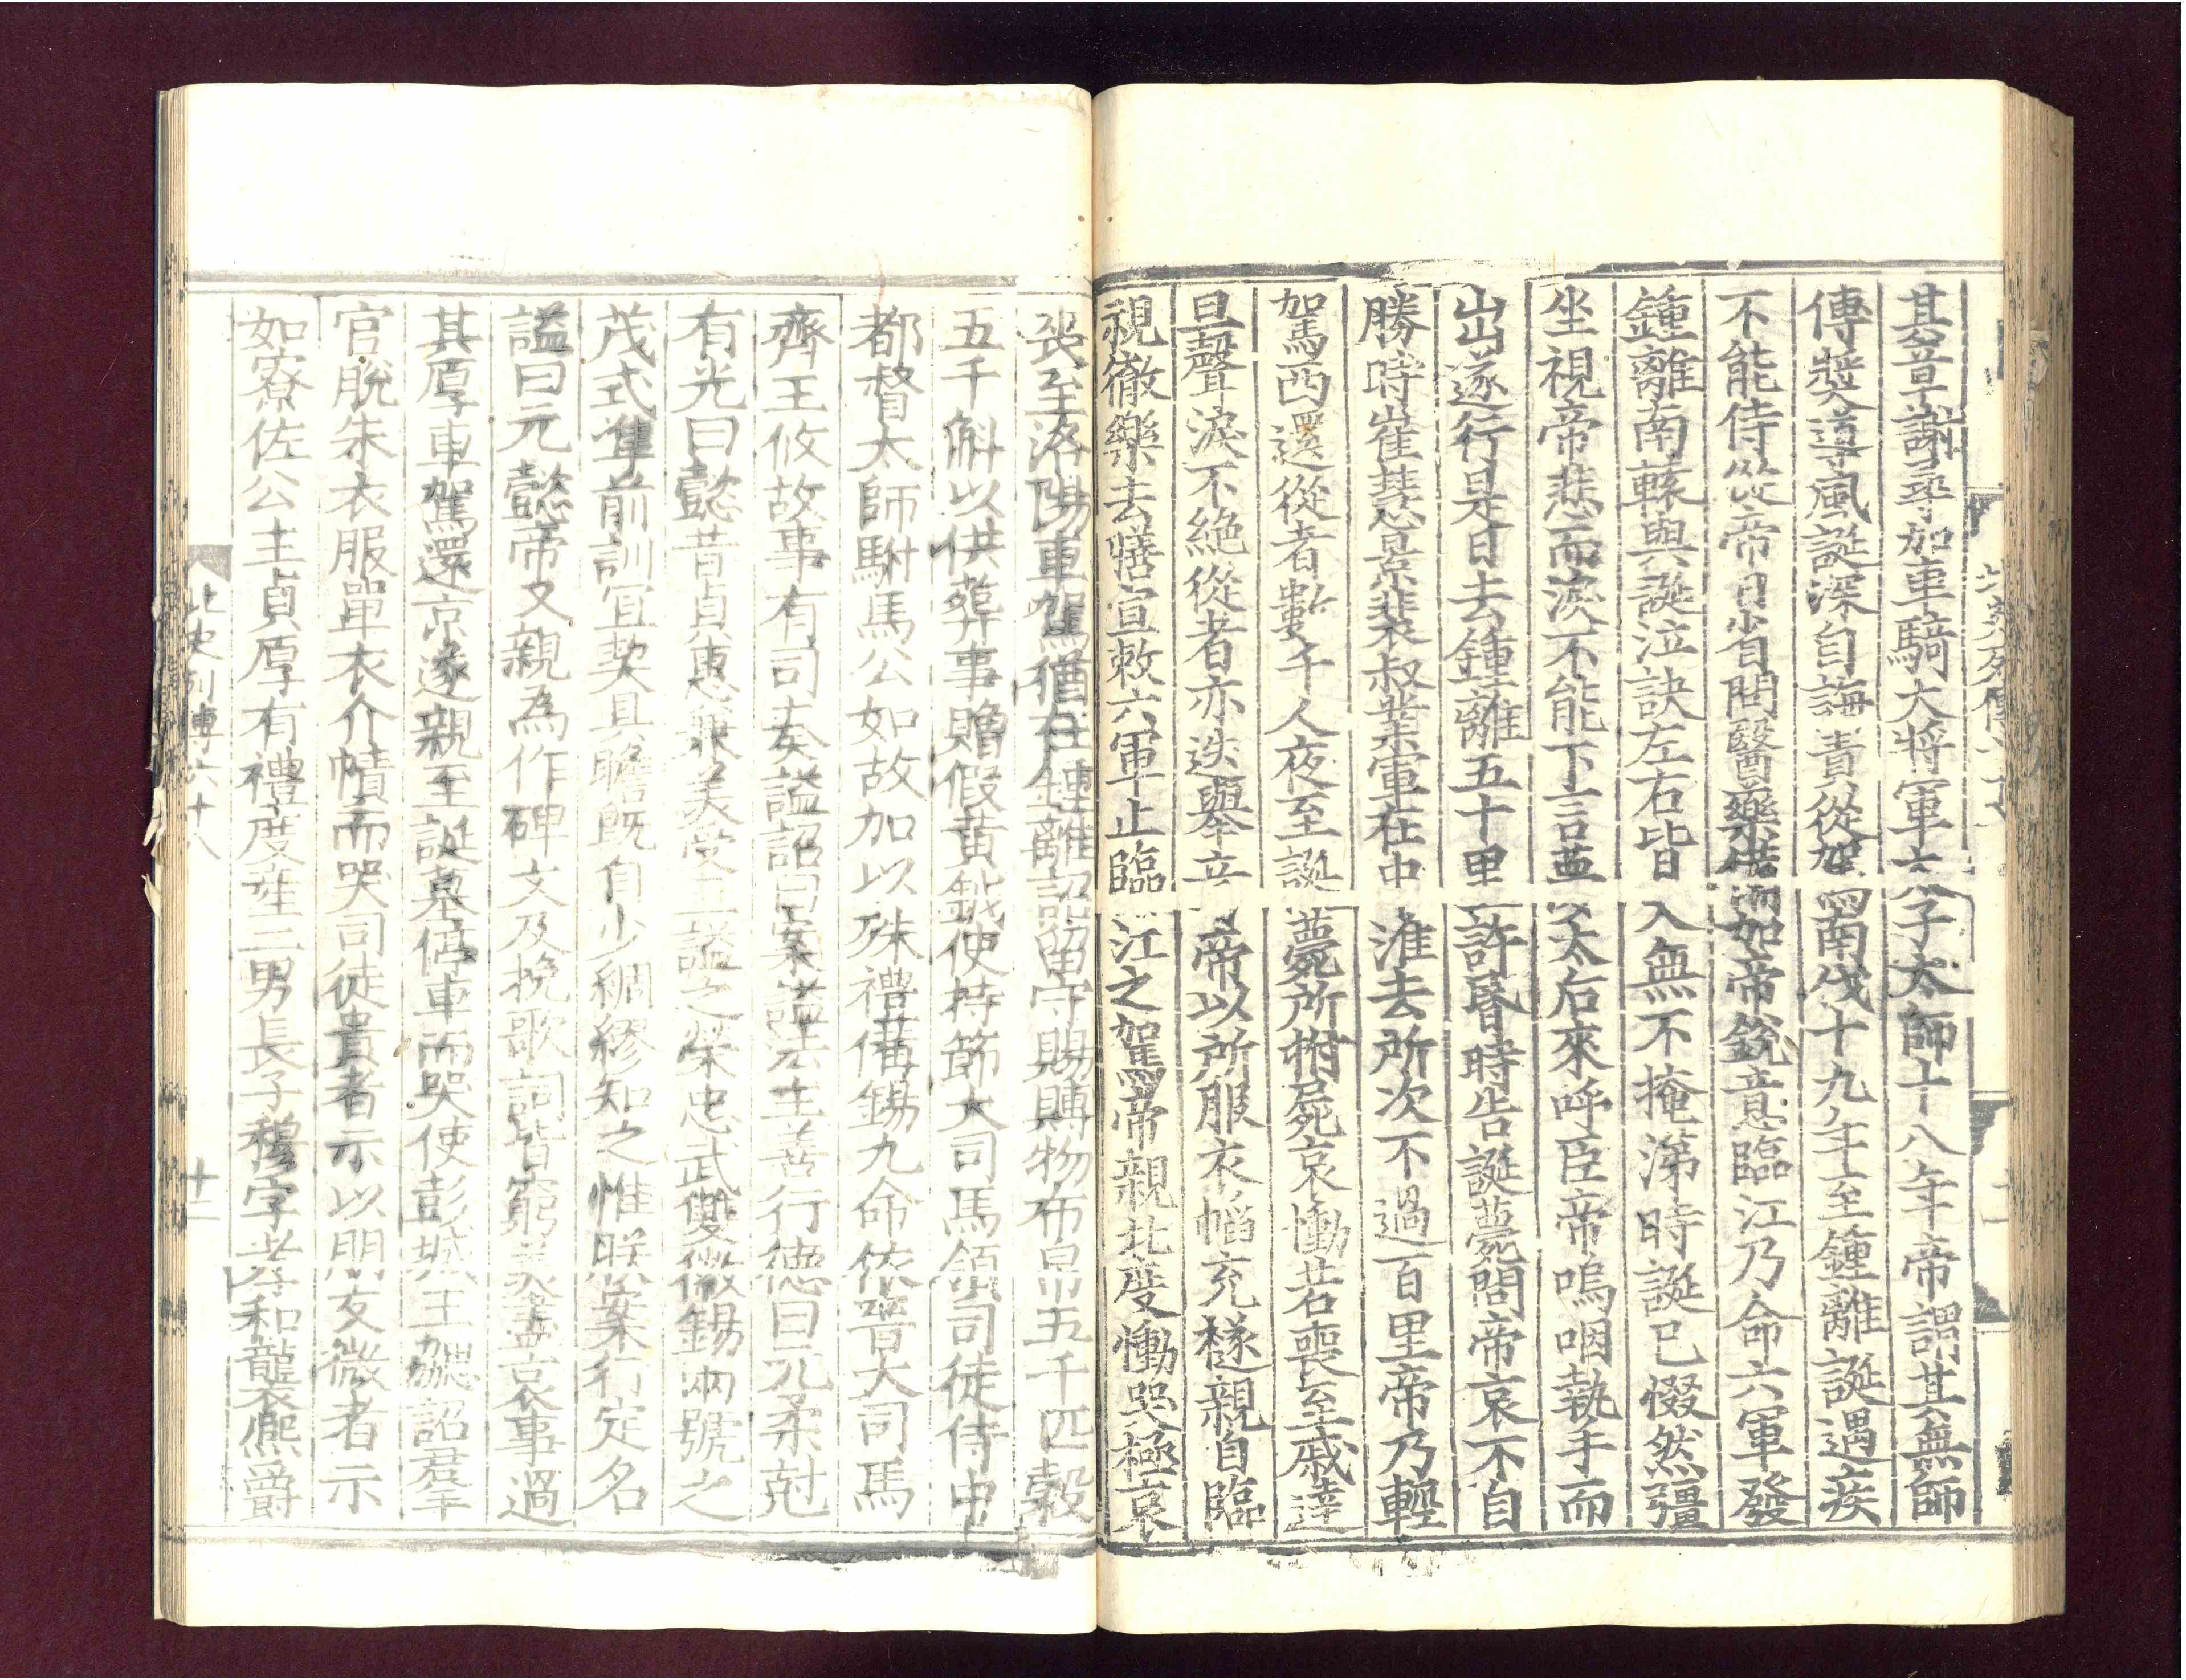 其章謝尋加車騎大將軍太子太師十八年帝謂其無師
傅奬導風誕深自誨責從駕南伐十九年至鍾離誕遇疾
不能侍從帝日省問醫藥備加帝銳意臨江乃命六軍發
鍾離南轅與誕泣訣左右皆入無不掩涕時誕已惙然彊
坐視帝悲而淚不能下言夢太后來呼臣帝嗚咽執手而
出遂行是日去鍾離五十里許昏時告誕薨問帝哀不自
勝時崔慧景裴叔業軍在中淮去所次不過百里帝乃輕
駕西還從者數千人夜至誕薨所拊屍哀慟若喪至戚達
旦聲淚不絕從者亦迭舉音帝以所服衣幍充襚親自臨
視徹樂去膳宣敕六軍止臨江之駕帝親北度慟哭極哀
喪至洛陽車駕猶在鍾離詔留守賜賻物布帛五千匹穀
五千斛以供葬事贈假黃鉞使持節大司馬領司徒侍中
都督太師駙馬公如故加以殊禮備錫九命依晉大司馬
齊王攸故事有司奏諡詔曰案諡法主善行德曰元柔剋
有光曰懿昔貞惠兼美受二諡之榮忠武雙徽錫兩號之
茂式準前訓宜契具瞻旣自少綢繆知之惟朕案行定名
諡曰元懿帝又親為作碑文及挽歌詞皆窮美盡哀事過
其厚車駕還京遂親至誕墓停車而哭使彭城王勰詔羣
官脫朱衣服單衣介幘而哭司徒貴者示以朋友微者示
如寮佐公主貞厚有禮度產二男長子穆字孝和襲熙爵
北史列傳六十八
十二